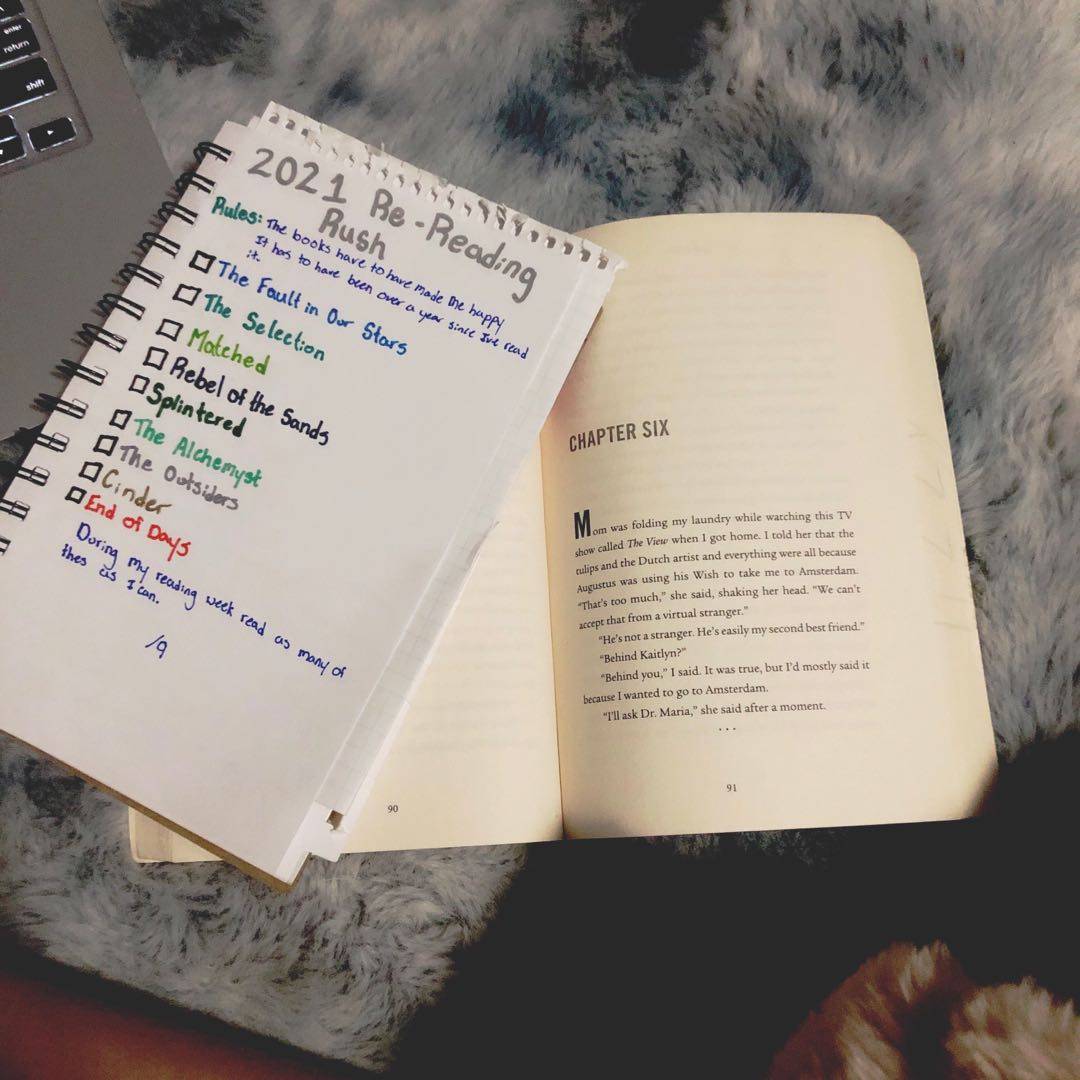 enter
return
shift
2021 Re-Reading
Rush
Rules: The books have to have made me happy
It has to have been over a year since I've read
it.
The Fault in Our Stars
The Selection
Matched
Rebel of the Sands
Splintered
The Alchemyst
The Outsiders
Cinder
End of Days
During my reading week read as many of
thes as I can.
/9
90
CHAPTER SIX
Mom was folding my laundry while watching this TV
show called The View when I got home. I told her that the
tulips and the Dutch artist and everything were all because
Augustus was using his Wish to take me to Amsterdam.
“That’s too much,” she said, shaking her head. “We can’t
accept that from a virtual stranger.”
“He’s not a stranger. He’s easily my second best friend.”
“Behind Kaitlyn?”
“Behind you,” I said. It was true, but I’d mostly said it
because I wanted to go to Amsterdam.
“I’ll ask Dr. Maria,” she said after a moment.
. . .
91